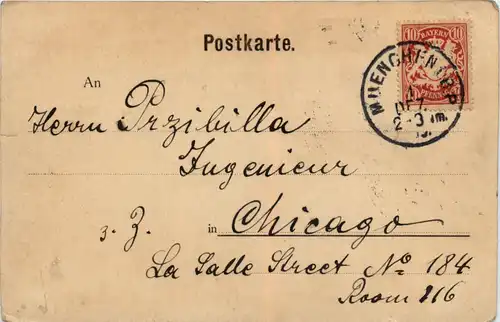 10 BAYERN 10
PFENNIG
Postkarte.
MUENCHEN
1
DEZ.
2-3 Nm.
An
Herrn Przibilla
Ingenieur
z. Z. in Chicago
La Salle Street No 184
Room 216